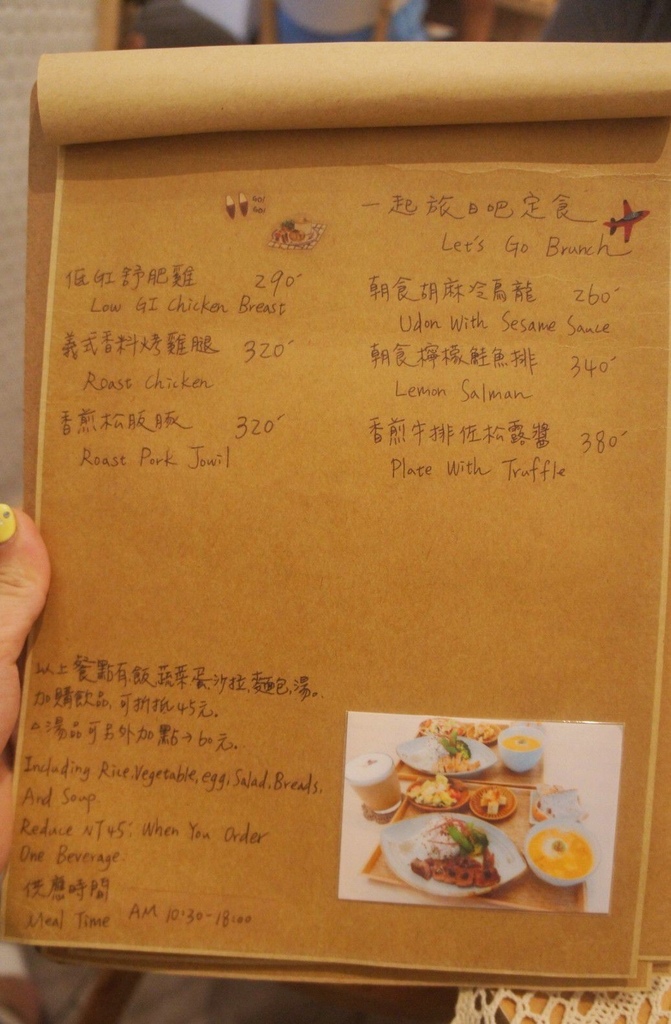 一起旅日吧定食
Let's Go Brunch
低GI舒肥雞 290
Low GI Chicken Breast
義式香料烤雞腿 320
Roast Chicken
香煎松阪豚 320
Roast Pork Jowil
朝食胡麻冷烏龍 260
Udon With Sesame Sauce
朝食檸檬鮭魚排 340
Lemon Salman
香煎牛排佐松露醬 380
Plate With Truffle
以上餐點有飯,蔬菜,蛋,沙拉,麵包,湯。
加購飲品,可折抵45元。
△湯品可另外加點→60元。
Including Rice,Vegetable,egg,Salad,Breads,
And Soup.
Reduce NT45: When You Order
One Beverage.
供應時間
Meal Time AM 10:30-18:00